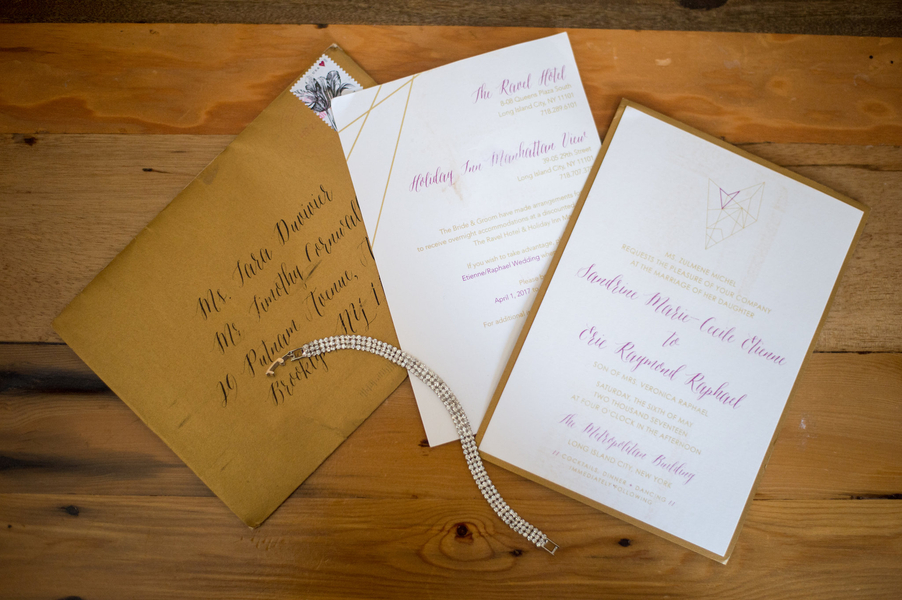 Ms. Sara Duvivier
Ms. Timothy Cornwal
Putnam Avenue,
Brooklyn
The Ravel Hotel
Queens Plaza South
Long Island City, NY 11101
718.289.6101
Holiday Inn Manhattan View
29th Street
Long Island City, NY 11101
718.707.
The Bride & Groom have made arrangements
to receive overnight accommodations at a discounted
The Ravel Hotel & Holiday Inn
If you wish to take advantage,
Etienne/Raphael Wedding
Please
April 1, 2017
For additional
REQUESTS THE PLEASURE OF YOUR COMPANY
AT THE MARRIAGE OF HER DAUGHTER
Sandrine Marie-Cecile Etienne
to
Eric Raymond Raphael
SON OF MRS. VERONICA RAPHAEL
SATURDAY, THE SIXTH OF MAY
TWO THOUSAND SEVENTEEN
AT FOUR O'CLOCK IN THE AFTERNOON
The Metropolitan Building
LONG ISLAND CITY, NEW YORK
COCKTAILS, DINNER + DANCING
IMMEDIATELY FOLLOWING